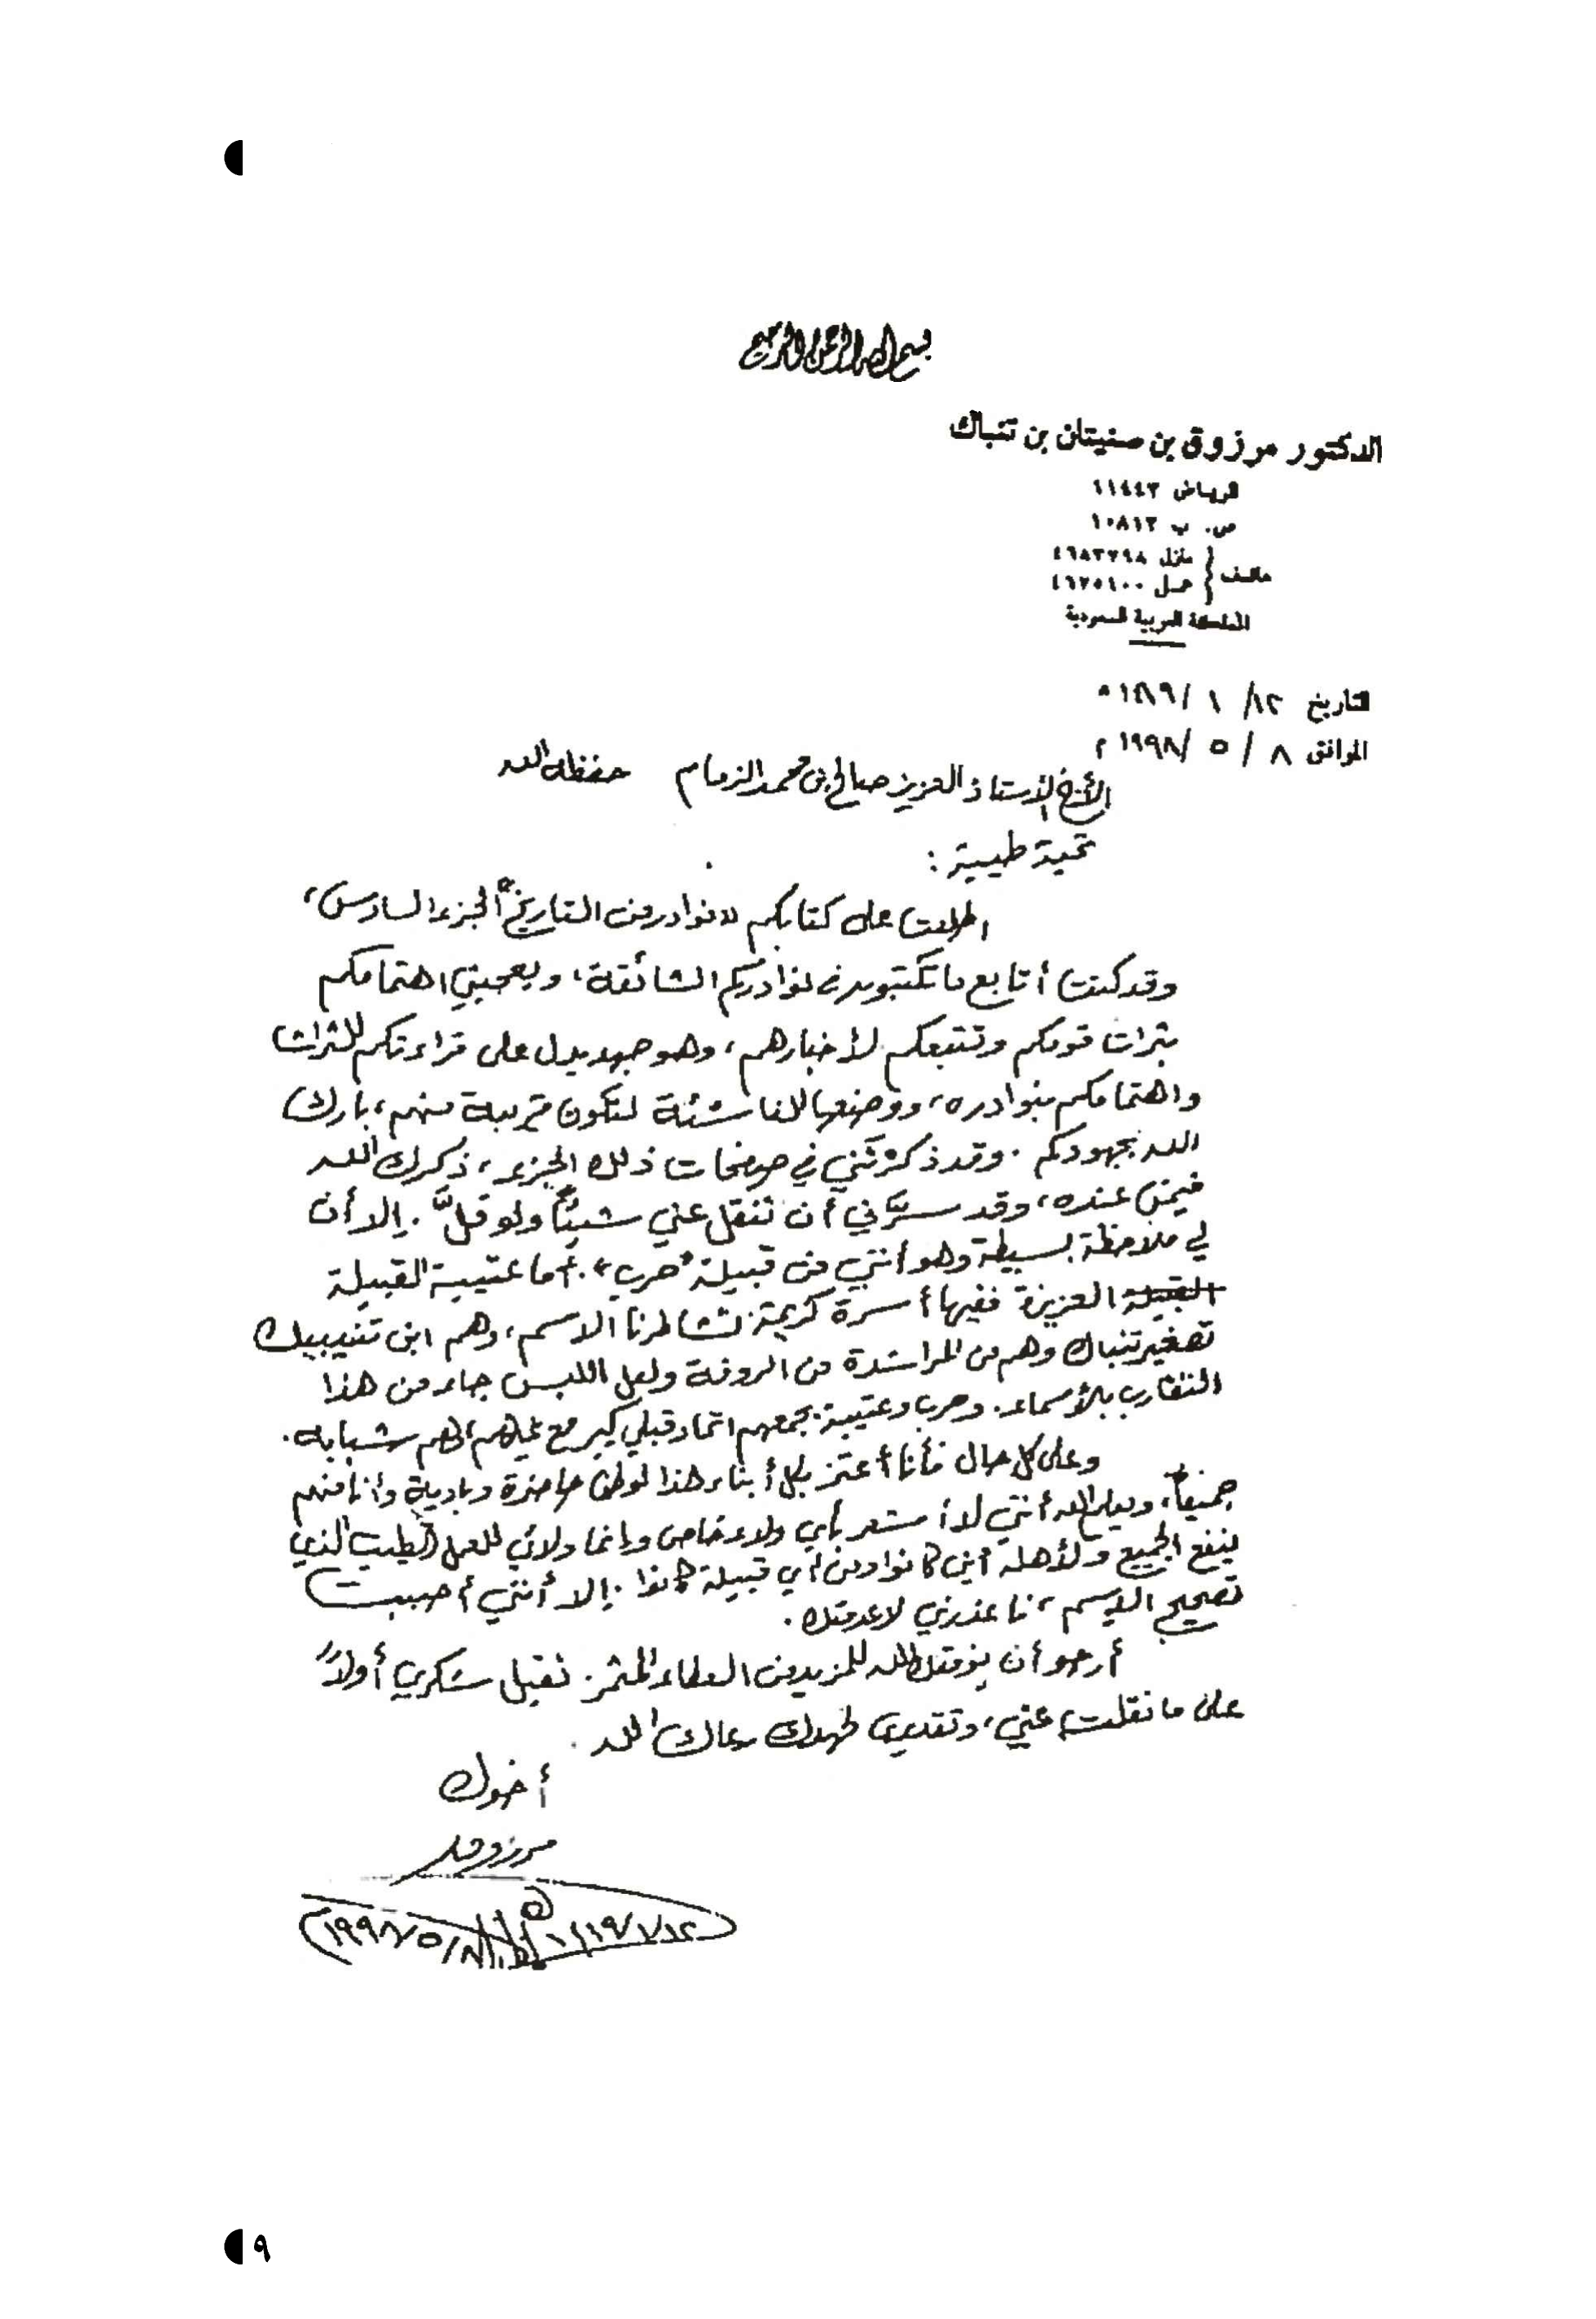 بسم الله الرحمن الرحيم
الدكتور مرزوق بن صنيتان بن تنباك
الرياض ١١٤٤٣
ص. ب ١٠٨١٢
هاتف { منزل ٤٦٨٣٢٩٨
عمل ٤٦٧٥١٠٠
المملكة العربية السعودية
التاريخ ١٢/ ١ /
الموافق ٨ / ٥ /١٩٩٨م
الأخ الأستاذ العزيز صالح بن محمد الزمام حفظه الله
تحية طيبة :
اطلعت على كتابكم «نوادر من التاريخ» الجزء السادس،
وقد كنت أتابع ما تكتبون من نوادركم الشائقة، ويعجبني اهتمامكم
بتراث قومكم وتتبعكم لأخبارهم، وهو جهد يدل على قراءتكم للتراث
واهتمامكم بنوادره، ووضعها للناشئة لتكون قريبة منهم، بارك
الله بجهودكم. وقد ذكرتني في صفحات ذلك الجزء، ذكرك الله
فيمن عنده، وقد سرّني أن تنقل عني شيئاً ولو قلَّ. إلا أن
لي ملاحظة بسيطة وهو أنني من قبيلة «حرب». أما عتيبة القبيلة
القبيلة العزيزة ففيها أسرة كريمة تشاطرنا الاسم، وهم ابن تنيبيك
تصغير تنباك وهم من المراشدة من الروقة ولعل اللبس جاء من هذا
التقارب بالأسماء. وحرب وعتيبة يجمعهم اتحاد قبلي كبير مع غيرهم شبابه.
وعلى كل حال فأنا أعتز بكل أبناء هذا الوطن حاضرة وبادية وأنا منهم
جميعاً، ويعلم الله أنني لا أشعر بأي ولاء خاص وإنما ولائي للعمل الطيب الذي
ينفع الجميع ولأهله أين كانوا ومن أي قبيلة كانوا. إلا أنني أحببت
تصحيح الاسم، فاعذرني لا عدمتك.
أرجو أن يوفقك الله للمزيد من العطاء المثمر. تقبل شكري أولاً
على ما نقلت عني، وتقديري لجهدك رعاك الله.
أخوك
مرزوق
١٩٩٨/٥/٨م
٩